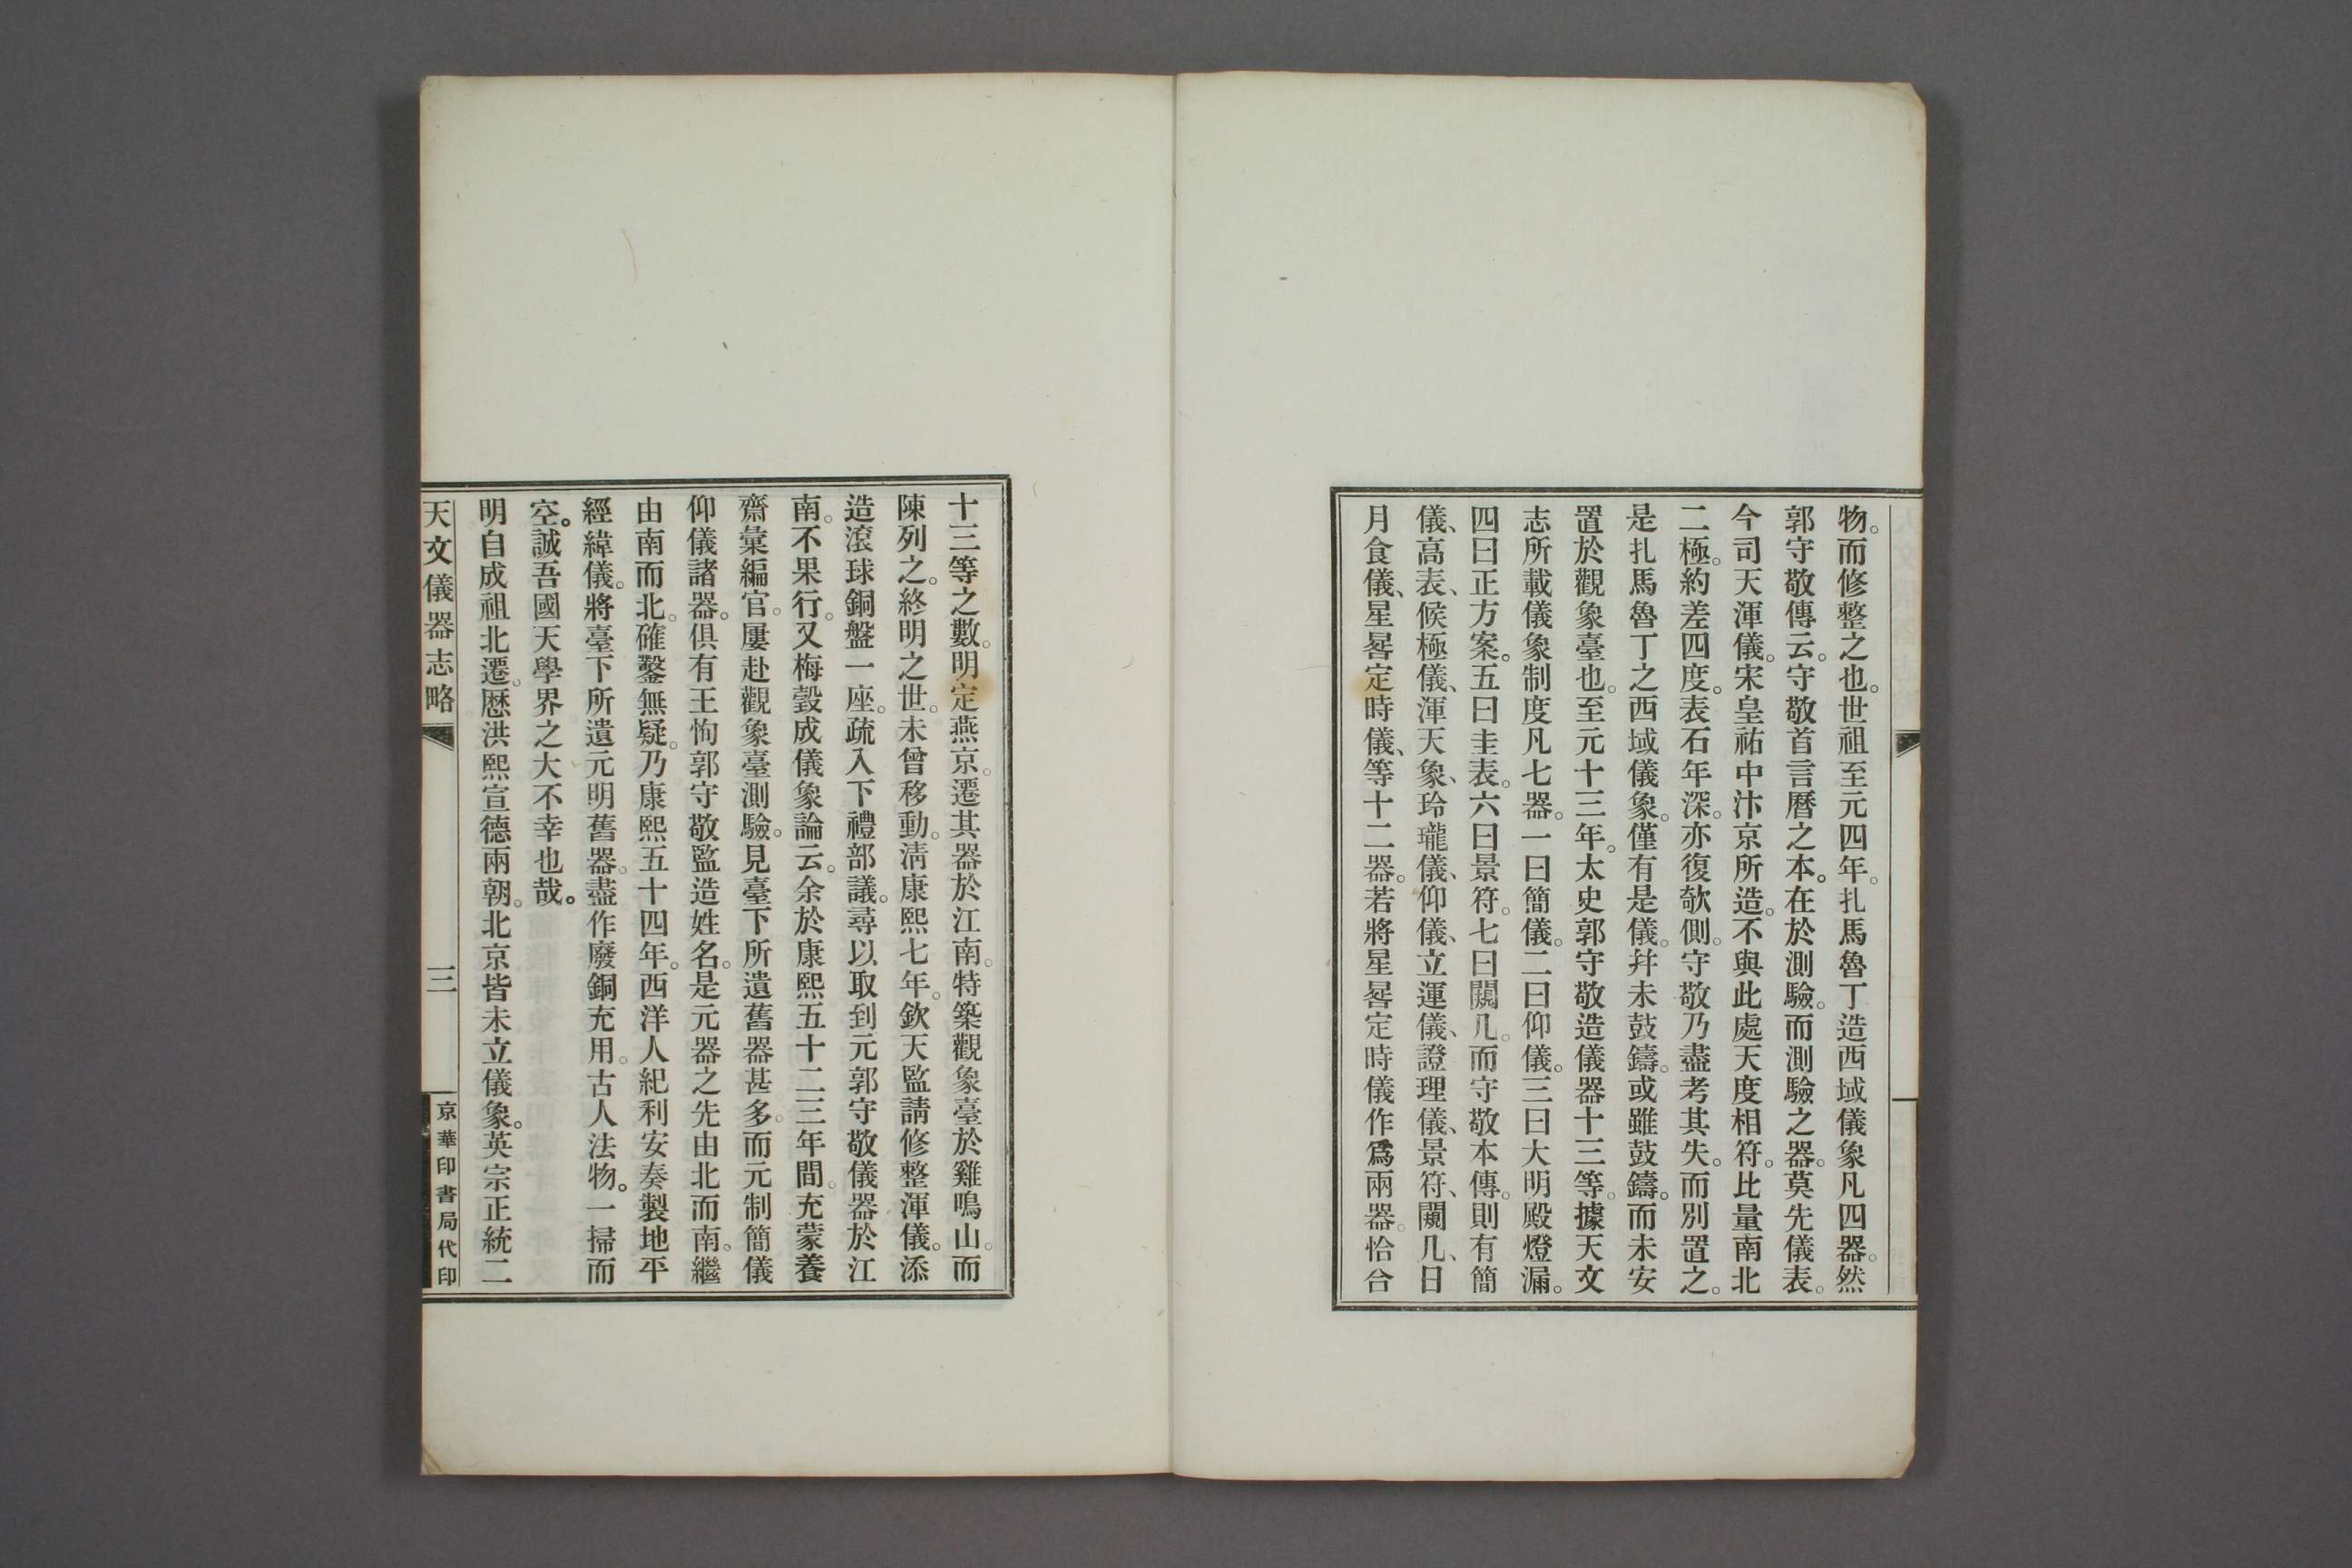 物。而修整之也。世祖至元四年。扎馬魯丁造西域儀象凡四器。然
郭守敬傳云。守敬首言曆之本。在於測驗。而測驗之器。莫先儀表。
今司天渾儀。宋皇祐中汴京所造。不與此處天度相符。比量南北
二極。約差四度。表石年深。亦復欹側。守敬乃盡考其失。而別置之。
是扎馬魯丁之西域儀象。僅有是儀。幷未鼓鑄。或雖鼓鑄。而未安
置於觀象臺也。至元十三年。太史郭守敬造儀器十三等。據天文
志所載儀象制度凡七器。一曰簡儀。二曰仰儀。三曰大明殿燈漏。
四曰正方案。五曰圭表。六曰景符。七曰闚几。而守敬本傳。則有簡
儀、高表、候極儀、渾天象、玲瓏儀、仰儀、立運儀、證理儀、景符、闚几、日
月食儀、星晷定時儀、等十二器。若將星晷定時儀作爲兩器。恰合
十三等之數。明定燕京。遷其器於江南。特築觀象臺於雞鳴山。而
陳列之。終明之世。未曾移動。淸康熙七年。欽天監請修整渾儀。添
造滾球銅盤一座。疏入下禮部議。尋以取到元郭守敬儀器於江
南。不果行。又梅瑴成儀象論云。余於康熙五十二三年間。充蒙養
齋彙編官。屢赴觀象臺測驗。見臺下所遺舊器甚多。而元制簡儀
仰儀諸器。俱有王恂郭守敬監造姓名。是元器之先由北而南。繼
由南而北。確鑿無疑。乃康熙五十四年。西洋人紀利安奏製地平
經緯儀。將臺下所遺元明舊器。盡作廢銅充用。古人法物。一掃而
空。誠吾國天學界之大不幸也哉。
明自成祖北遷。歷洪熙宣德兩朝。北京皆未立儀象。英宗正統二
天文儀器志略
三
京華印書局代印